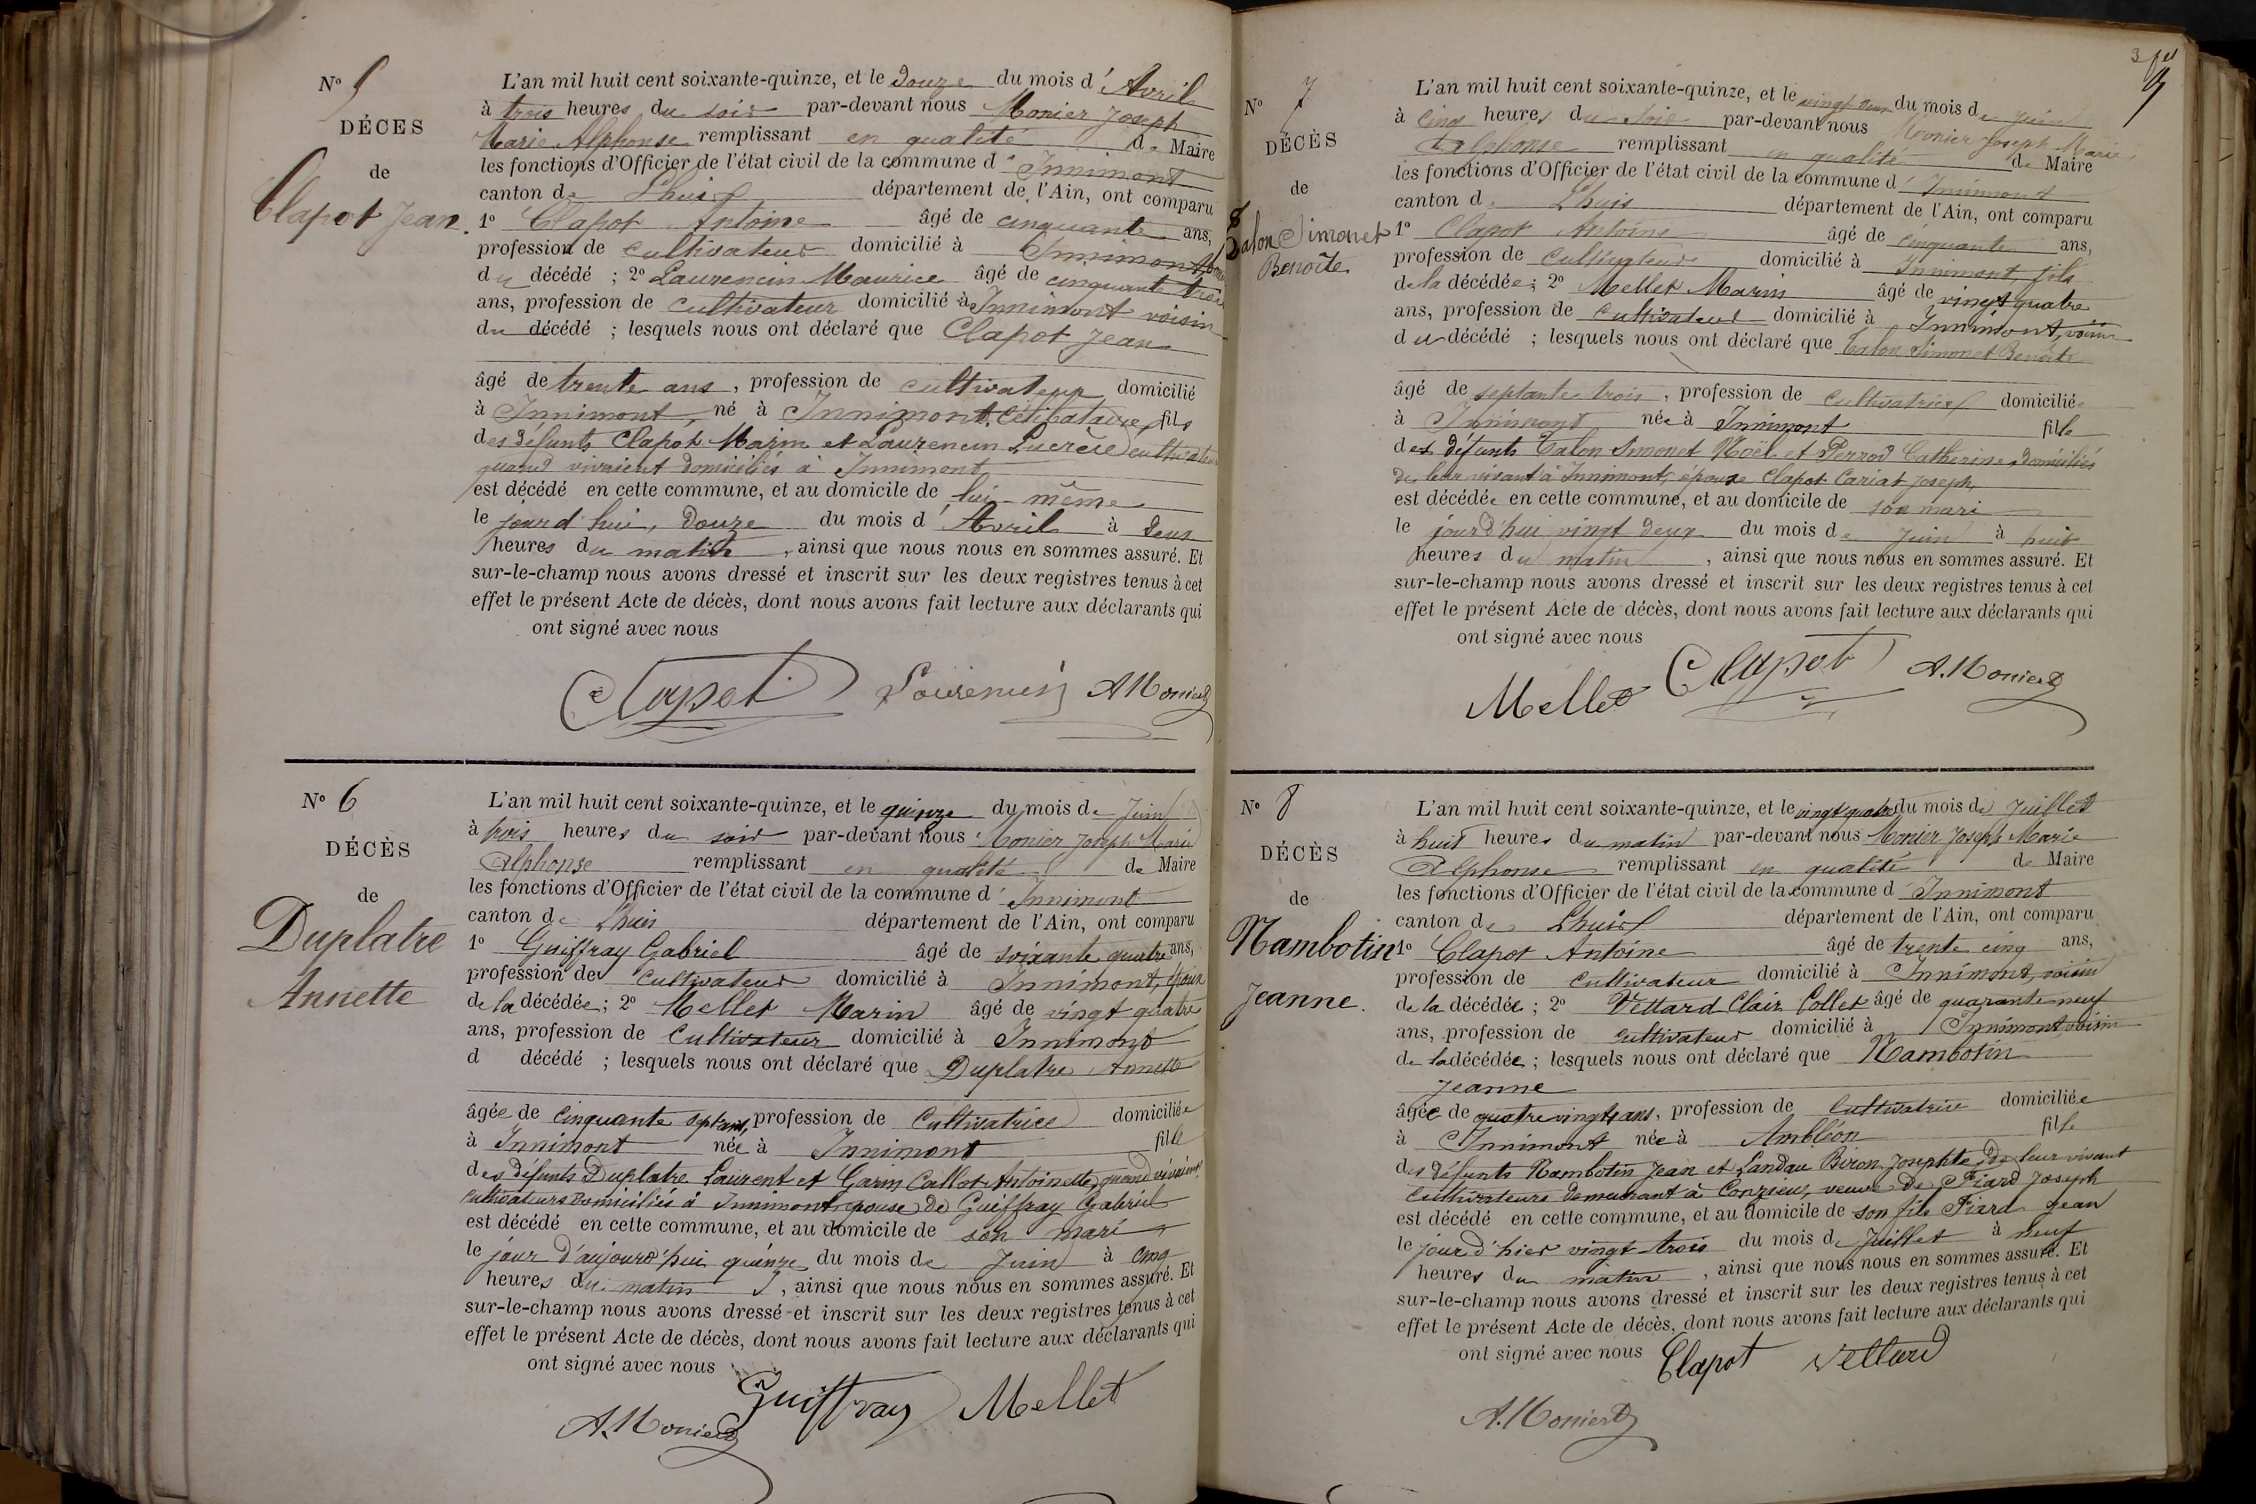 N° 5
DÉCES
de
Clapot Jean.
L'an mil huit cent soixante-quinze, et le douze du mois d'Avril
à trois heures du soir par-devant nous Monier Joseph
Marie Alphonse remplissant en qualité de Maire
les fonctions d'Officier de l'état civil de la commune d'Innimont
canton de Lhuis département de l'Ain, ont comparu
1° Clapot Antoine âgé de cinquante ans,
profession de cultivateur domicilié à Innimont
du décédé ; 2° Laurencin Maurice âgé de cinquante trois
ans, profession de cultivateur domicilié à Innimont voisin
du décédé ; lesquels nous ont déclaré que Clapot Jean
âgé de trente ans, profession de cultivateur domicilié
à Innimont, né à Innimont. Célibataire, fils
des défunts Clapot Marin et Laurencin Lucrèce cultivateurs
quand vivaient domiciliés à Innimont
est décédé en cette commune, et au domicile de lui-même
le jourd'hui, douze du mois d'Avril à deux
heures du matin, ainsi que nous nous en sommes assuré. Et
sur-le-champ nous avons dressé et inscrit sur les deux registres tenus à cet
effet le présent Acte de décès, dont nous avons fait lecture aux déclarants qui
ont signé avec nous
Clapot Laurencin A. Monier
N° 6
DÉCÈS
de
Duplatre
Annette
L'an mil huit cent soixante-quinze, et le quinze du mois de Juin
à trois heures du soir par-devant nous Monier Joseph Marie
Alphonse remplissant en qualité de Maire
les fonctions d'Officier de l'état civil de la commune d'Innimont
canton de Lhuis département de l'Ain, ont comparu
1° Guiffray Gabriel âgé de soixante quatre ans,
profession de cultivateur domicilié à Innimont, époux
de la décédée ; 2° Mellet Marin âgé de vingt quatre
ans, profession de Cultivateur domicilié à Innimont
d décédé ; lesquels nous ont déclaré que Duplatre Annette
âgée de cinquante sept ans, profession de Cultivatrice domiciliée
à Innimont née à Innimont fille
des défunts Duplatre Laurent et Garin Callot Antoinette, quand vivaient
cultivateurs domiciliés à Innimont, épouse de Guiffray Gabriel
est décédé en cette commune, et au domicile de son mari
le jour d'aujourd'hui quinze du mois de Juin à cinq
heures du matin, ainsi que nous nous en sommes assuré. Et
sur-le-champ nous avons dressé et inscrit sur les deux registres tenus à cet
effet le présent Acte de décès, dont nous avons fait lecture aux déclarants qui
ont signé avec nous
Guiffray Mellet
A. Monier
3
N° 7
DÉCÈS
de
Calon Simonet
Benoîte
L'an mil huit cent soixante-quinze, et le vingt deux du mois de Juin
à cinq heures du soir par-devant nous Monier Joseph Marie
Alphonse remplissant en qualité de Maire
les fonctions d'Officier de l'état civil de la commune d'Innimont
canton de Lhuis département de l'Ain, ont comparu
1° Clapot Antoine âgé de cinquante ans,
profession de Cultivateur domicilié à Innimont, fils
de la décédée ; 2° Mellet Marin âgé de vingt quatre
ans, profession de Cultivateur domicilié à Innimont, voisin
du décédé ; lesquels nous ont déclaré que Calon Simonet Benoîte
âgé de septante trois, profession de Cultivatrice domiciliée
à Innimont née à Innimont fille
des défunts Calon Simonet Noël et Perrod Catherine, domiciliés
de leur vivant à Innimont, épouse Clapot Cariat Joseph,
est décédée en cette commune, et au domicile de son mari
le jourd'hui vingt deux du mois de Juin à huit
heures du matin, ainsi que nous nous en sommes assuré. Et
sur-le-champ nous avons dressé et inscrit sur les deux registres tenus à cet
effet le présent Acte de décès, dont nous avons fait lecture aux déclarants qui
ont signé avec nous
Mellet Clapot A. Monier
N° 8
DÉCÈS
de
Nambotin
Jeanne.
L'an mil huit cent soixante-quinze, et le vingt quatre du mois de Juillet
à huit heures du matin par-devant nous Monier Joseph Marie
Alphonse remplissant en qualité de Maire
les fonctions d'Officier de l'état civil de la commune d'Innimont
canton de Lhuis département de l'Ain, ont comparu
1° Clapot Antoine âgé de trente cinq ans,
profession de cultivateur domicilié à Innimont, voisin
de la décédée ; 2° Vettard Clair Collet âgé de quarante neuf
ans, profession de cultivateur domicilié à Innimont, voisin
de la décédée ; lesquels nous ont déclaré que Nambotin
Jeanne
âgée de quatre vingts ans, profession de Cultivatrice domiciliée
à Innimont née à Ambléon fille
des défunts Nambotin Jean et Landau Biron Josephte, de leur vivant
cultivateurs demeurant à Conzieux, veuve de Piard Joseph
est décédé en cette commune, et au domicile de son fils Piard Jean
le jour d'hier vingt trois du mois de Juillet à neuf
heures du matin, ainsi que nous nous en sommes assuré. Et
sur-le-champ nous avons dressé et inscrit sur les deux registres tenus à cet
effet le présent Acte de décès, dont nous avons fait lecture aux déclarants qui
ont signé avec nous Clapot Vettard
A. Monier